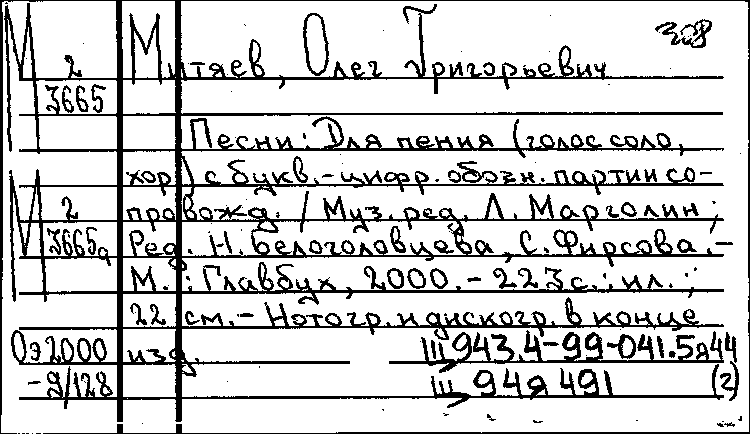 М Митяев, Олег Григорьевич
2
3665
Песни: Для пения (голос соло,
хор) с букв.-цифр. обозн. партии со-
М 2 провожд. / Муз. ред. Л. Марголин;
3665а Ред. Н. Белоголовцева, С. Фирсова.-
М.: Главбух, 2000.- 223 с.: ил.;
22 см.- Нотогр. и дискогр. в конце
Оэ2000 изд. Щ943.4-99-041.5я44
-9/128 Щ94я491 (2)